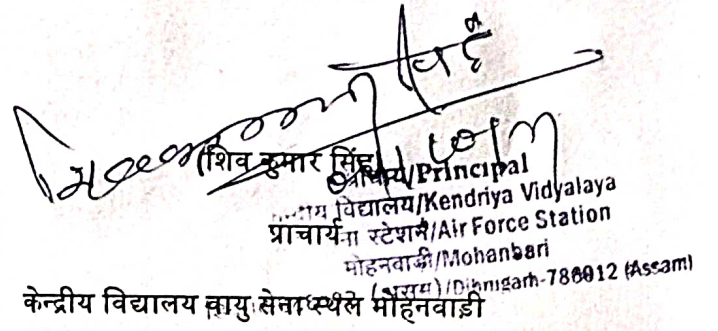 (शिव कुमार सिंह)
प्राचार्य/Principal
विद्यालय/Kendriya Vidyalaya
प्राचार्य
स्टेशन/Air Force Station
मोहनबाड़ी/Mohanbari
(असम)/Dibrugarh-786012 (Assam)
केन्द्रीय विद्यालय वायु सेना स्थल मोहनवाड़ी